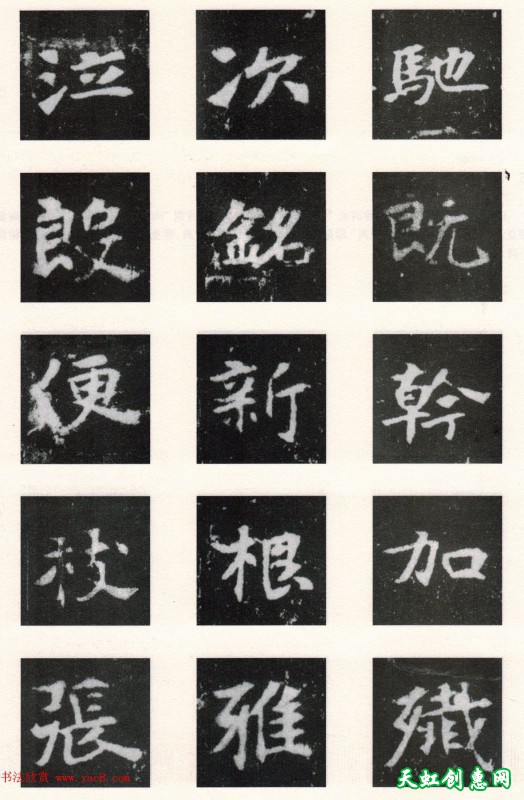 泣 次 馳
銘 既
便 新 幹
根 加
張 雅 殲
书法欣赏 www.yac8.com
天虹创意网